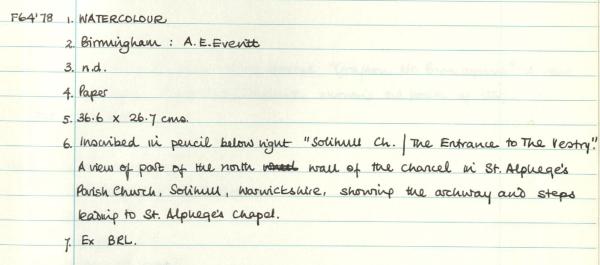 F64'78 1. WATERCOLOUR
2. Birmingham : A.E.Everitt
3. n.d.
4. Paper
5. 36.6 x 26.7 cms.
6. Inscribed in pencil below right "Solihull Ch. | The Entrance to The Vestry".
A view of part of the north wall of the chancel in St. Alphege's
Parish Church, Solihull, Warwickshire, showing the archway and steps
leading to St. Alphege's Chapel.
7. Ex BRL.